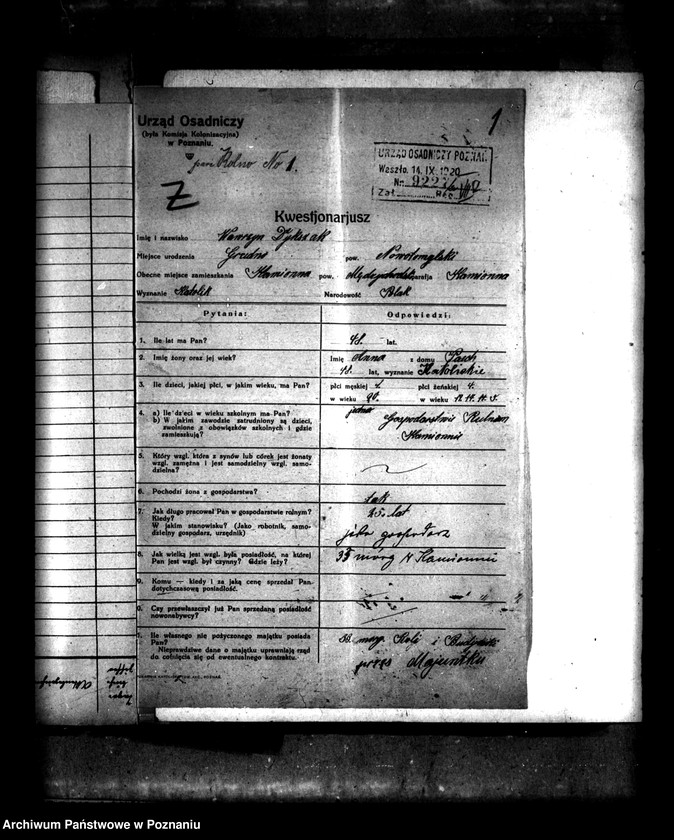 1
Urząd Osadniczy
(była Komisja Kolonizacyjna)
w Poznaniu.
No 1.
URZĄD OSADNICZY POZNAŃ
Weszło. 14. IX. 1920
Nr.
Zał.
Z
Kwestjonarjusz
Imię i nazwisko Wawrzyn Dykszak
Miejsce urodzenia Grudno pow. Nowotomyski
Obecne miejsce zamieszkania Kamionna pow. parafja Kamionna
Wyznanie Katolik Narodowość Polak
Pytania: Odpowiedzi:
1. Ile lat ma Pan? 48. lat.
2. Imię żony oraz jej wiek? Imię Anna z domu
lat, wyznanie Katolickie
3. Ile dzieci, jakiej płci, w jakim wieku, ma Pan? płci męskiej płci żeńskiej 4.
w wieku w wieku
4. a) Ile dzieci w wieku szkolnym ma Pan? jedno
b) W jakim zawodzie zatrudnione są dzieci,
zwolnione z obowiązków szkolnych i gdzie
zamieszkują?
Gospodarstwie
Kamionnie
5. Który wzgl. która z synów lub córek jest żonaty
wzgl. zamężna i jest samodzielny wzgl. samo-
dzielna?
6. Pochodzi żona z gospodarstwa? tak
7. Jak długo pracował Pan w gospodarstwie rolnym?
Kiedy?
25. lat
W jakim stanowisku? (Jako robotnik, samo-
dzielny gospodarz, urzędnik)
jako gospodarz
8. Jak wielką jest wzgl. była posiadłość, na której
Pan jest wzgl. był czynny? Gdzie leży?
35 mórg w Kamionnie
9. Komu — kiedy i za jaką cenę sprzedał Pan
dotychczasową posiadłość.
Czy przewłaszczył już Pan sprzedaną posiadłość
nowonabywcy?
Ile własnego nie pożyczonego majątku posiada
Pan?
Nieprawdziwe dane o majątku uprawniają rząd
do cofnięcia się od ewentualnego kontraktu.
Roli i
Majuntku
Archiwum Państwowe w Poznaniu